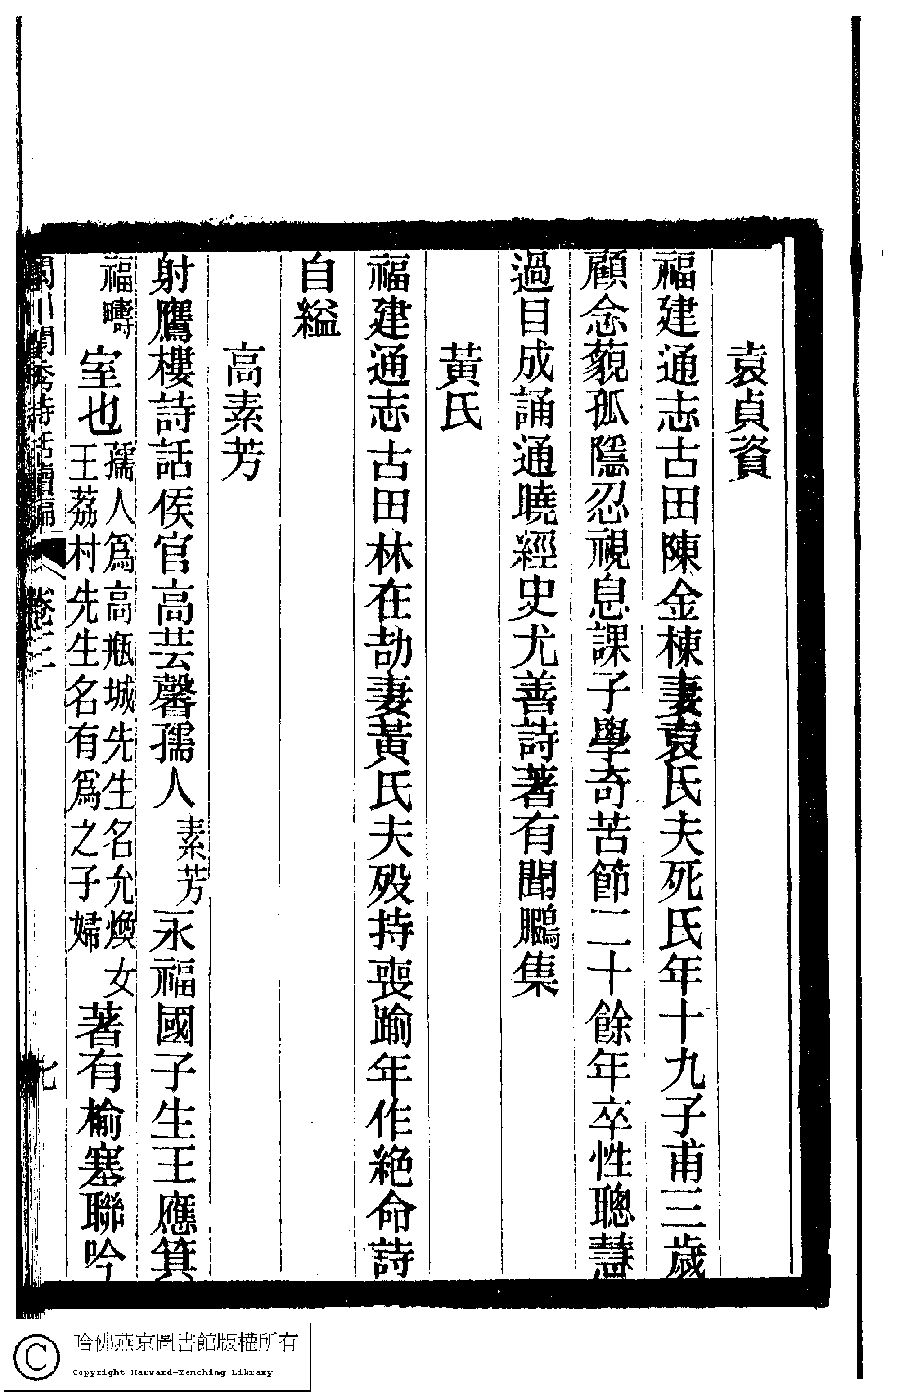 袁貞資
福建通志古田陳金棟妻袁氏夫死氏年十九子甫三歲
顧念藐孤隱忍視息課子學奇苦節二十餘年卒性聰慧
過目成誦通曉經史尤善詩著有聞鵬集
黃氏
福建通志古田林在勍妻黃氏夫歿持喪踰年作絕命詩
自縊
高素芳
射鷹樓詩話侯官高芸馨孺人素芳永福國子生王應箕
福疇室也孺人爲高瓶城先生名允煥女王荔村先生名有爲之子婦著有榆塞聯吟
閩川閨秀詩話續編
卷三
七
哈佛燕京圖書館版權所有
Copyright Harvard-Yenching Library